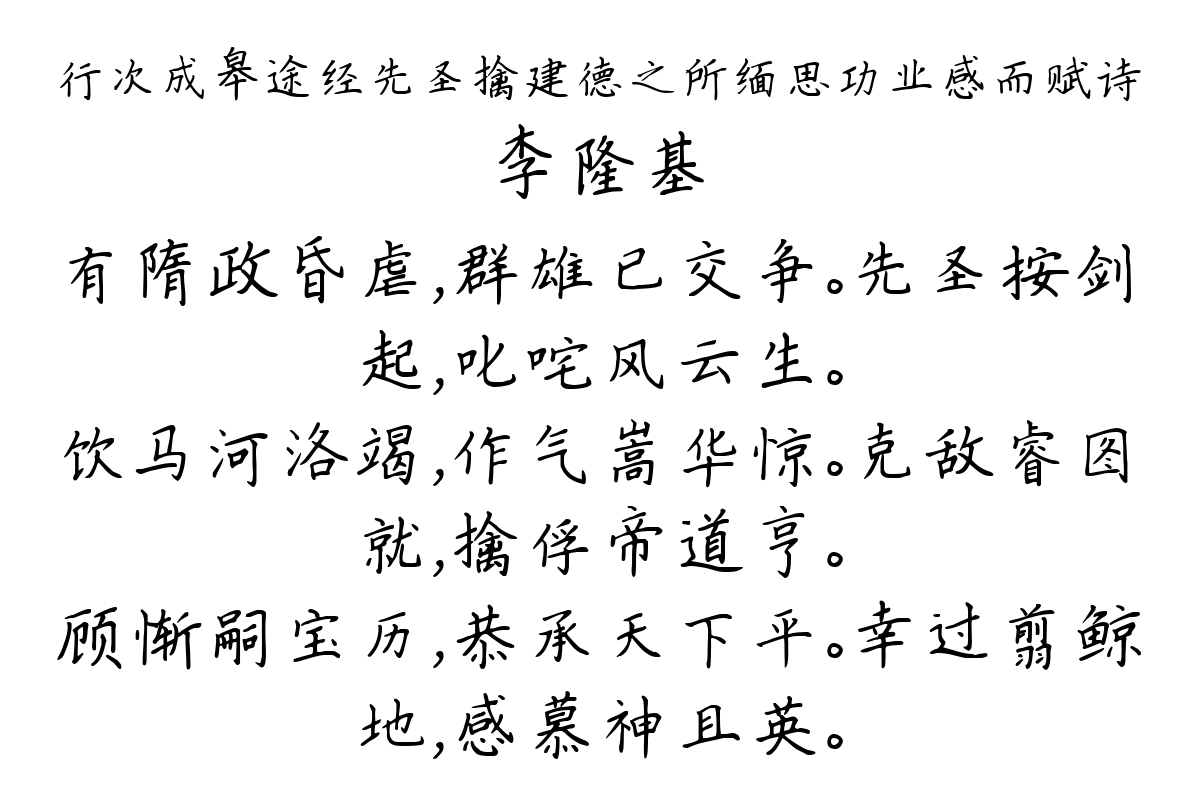 行次成皋途经先圣擒建德之所缅思功业感而赋诗
李隆基
有隋政昏虐,群雄已交争。先圣按剑
起,叱咤风云生。
饮马河洛竭,作气嵩华惊。克敌睿图
就,擒俘帝道亨。
顾惭嗣宝历,恭承天下平。幸过翦鲸
地,感慕神且英。